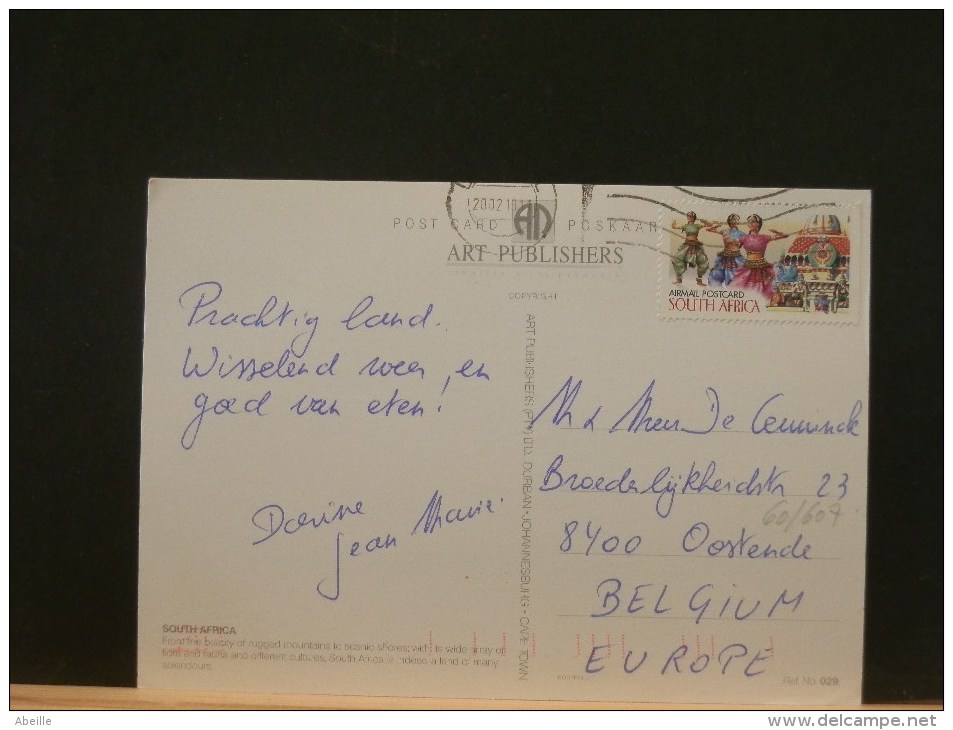 POST CARD
POSKAAR
ART PUBLISHERS
AIRMAIL POSTCARD
SOUTH AFRICA
COPYRIGHT
Prachtig land.
Wisselend weer, en
goed van eten!
Dorine
Jean Marie.
ART PUBLISHERS (PTY) LTD. DURBAN-JOHANNESBURG-CAPE TOWN
M & Mevr De
23
60/607
8400 Oostende
BELGIUM
EUROPE
SOUTH AFRICA
From the beauty of rugged mountains to scenic shores; with its wide array of
flora and fauna and different cultures, South Africa is indeed a land of many
splendours.
Ref. No. 029
Abeille
www.delcampe.net